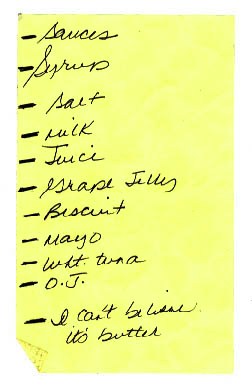 - Sauces
- Syrup
- Salt
- milk
- Juice
- Grape Jelly
- Biscuit
- mayo
- wht. tuna
- O.J.
- I can't believe
it's butter